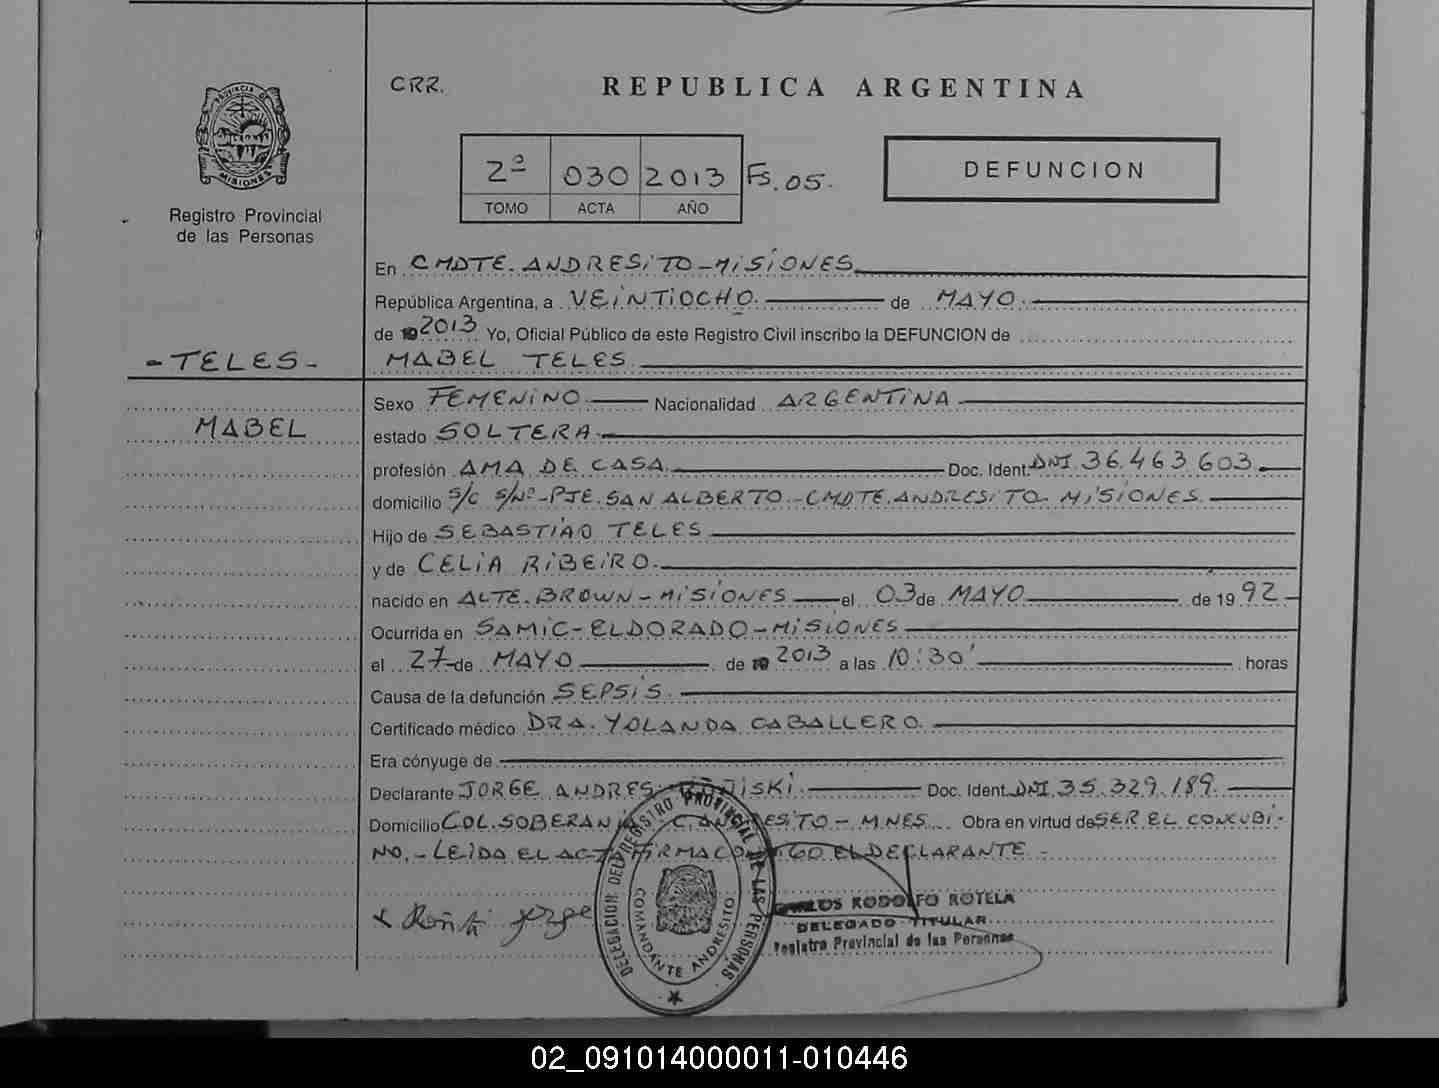 CRR. REPUBLICA ARGENTINA
PROVINCIA DE MISIONES
2º 030 2013 Fs. 05.
TOMO ACTA AÑO
DEFUNCION
Registro Provincial
de las Personas
En CMDTE. ANDRESITO - MISIONES
República Argentina, a VEINTIOCHO. de MAYO.
de 19 2013 Yo, Oficial Público de este Registro Civil inscribo la DEFUNCION de
- TELES - MABEL TELES.
Sexo FEMENINO Nacionalidad ARGENTINA
MABEL estado SOLTERA
profesión AMA DE CASA. Doc. Ident. DNI. 36.463.603.
domicilio S/C S/Nº - PJE. SAN ALBERTO. - CMDTE. ANDRESITO - MISIONES.
Hijo de SEBASTIÃO TELES
y de CELIA RIBEIRO.
nacido en ALTE. BROWN - MISIONES el 03 de MAYO de 19 92 -
Ocurrida en SAMIC - ELDORADO - MISIONES
el 27 de MAYO de 19 2013 a las 10:30' horas
Causa de la defunción SEPSIS.
Certificado médico DRA. YOLANDA CABALLERO.
Era cónyuge de
Declarante JORGE ANDRES Doc. Ident. DNI. 35.329.189.
Domicilio COL. SOBERANIA C. ANDRESITO - MNES. Obra en virtud de SER EL CONCUBI-
NO. - LEIDA EL ACTA FIRMA CONMIGO EL DECLARANTE. -
x Jorge
DELEGACION DEL REGISTRO PROVINCIAL DE LAS PERSONAS
COMANDANTE ANDRESITO
CARLOS RODOLFO ROTELA
DELEGADO TITULAR
Registro Provincial de las Personas
02_091014000011-010446